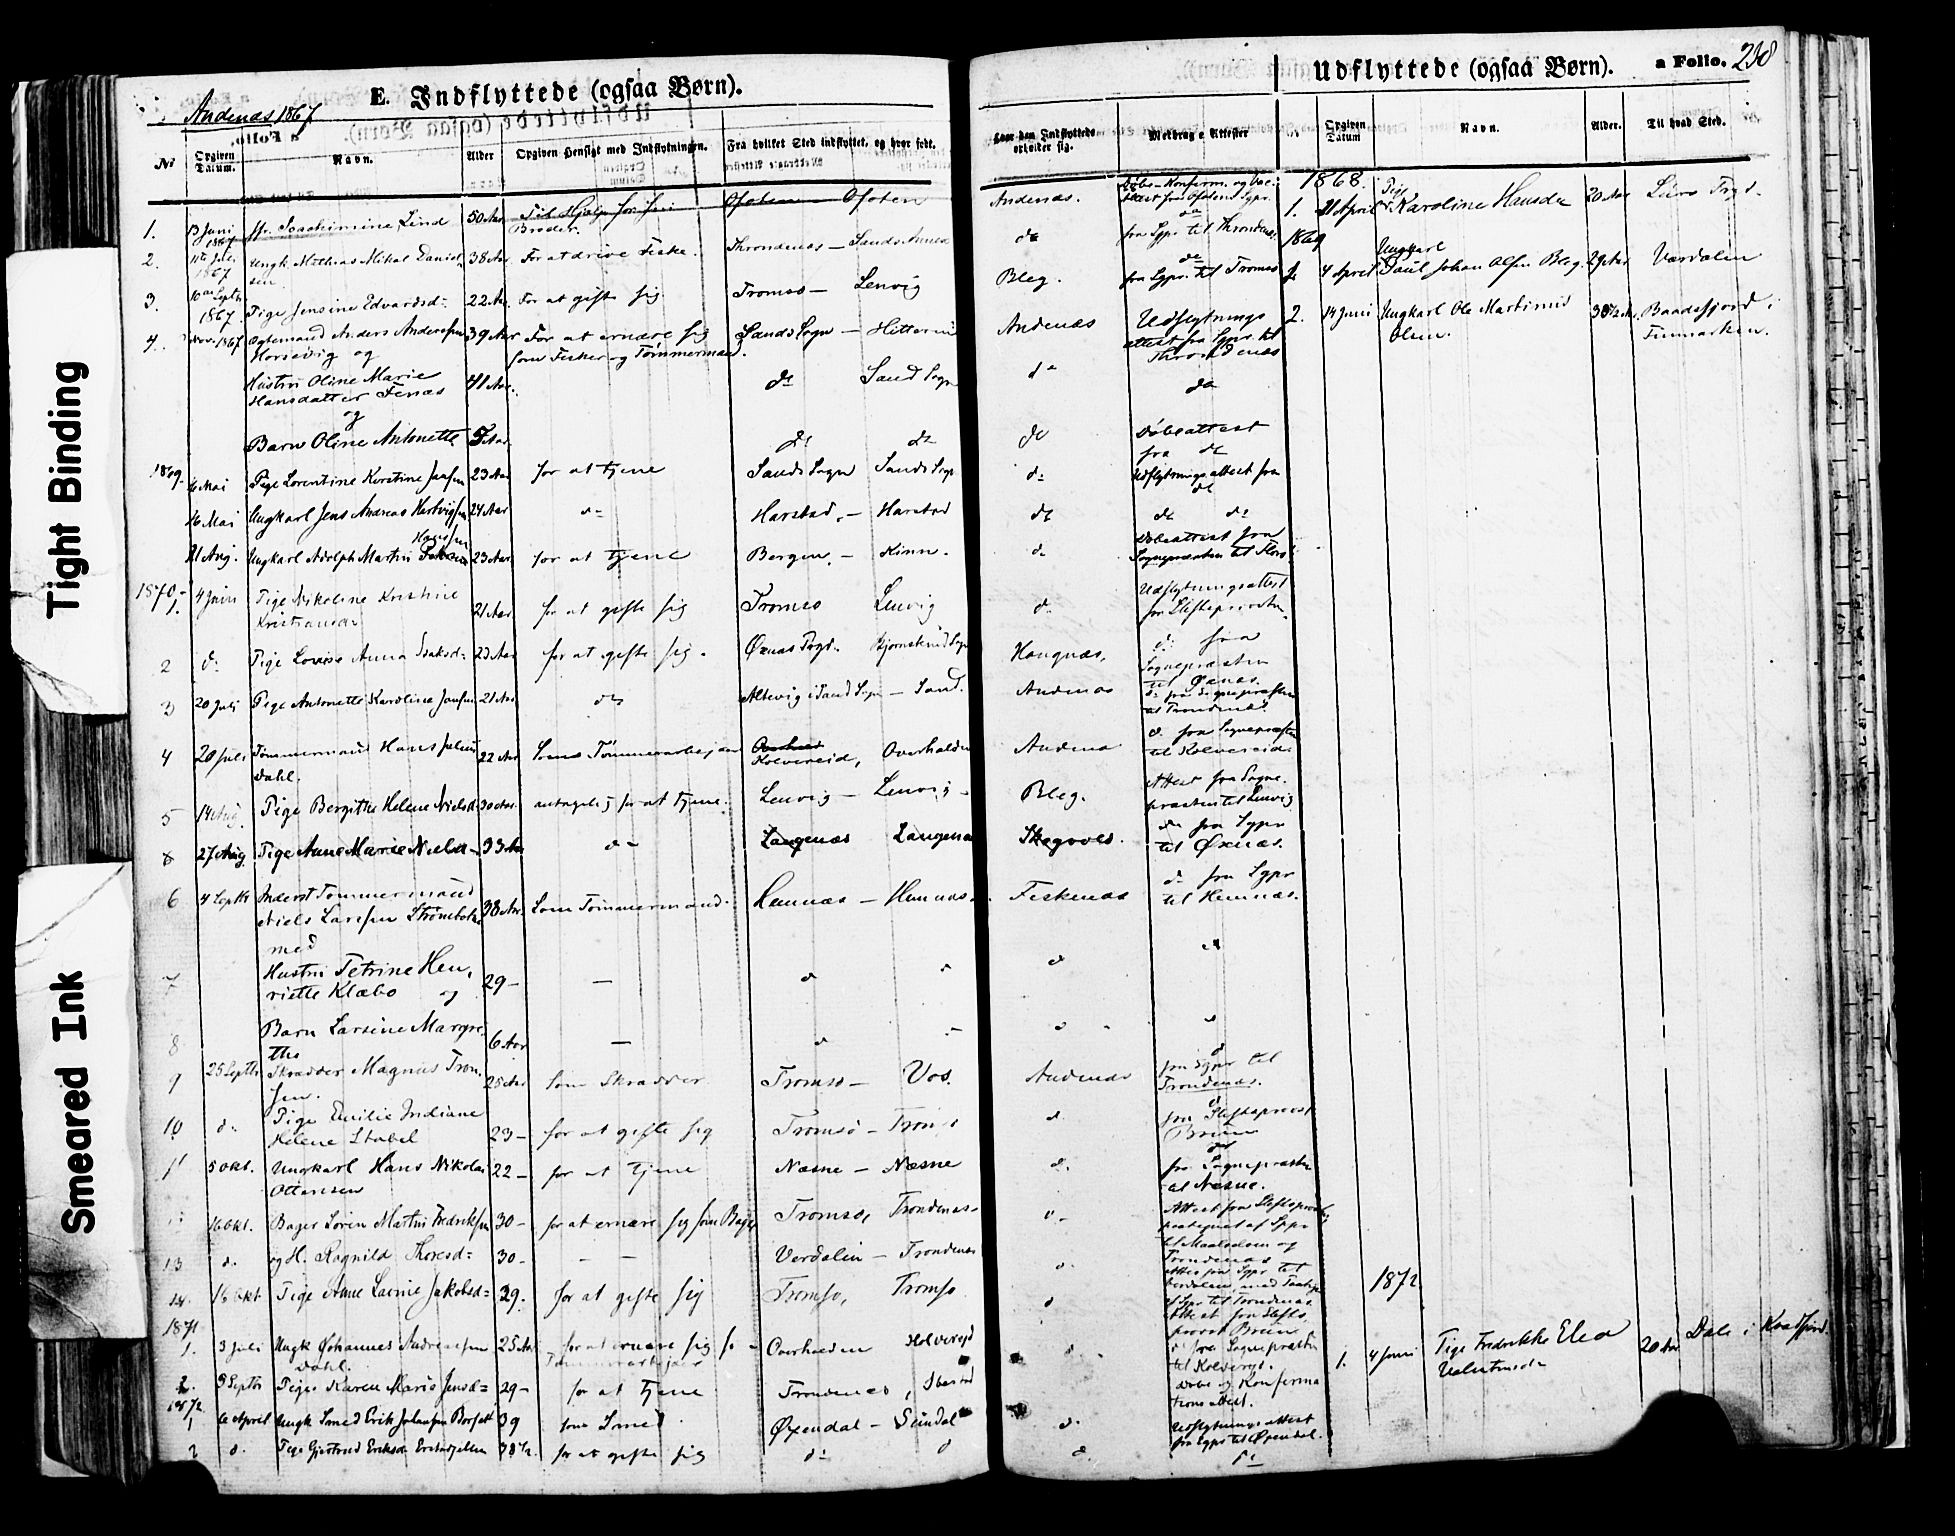 Tight Binding
Smeared Ink
Andenæs 1867
E. Indflyttede (ogsaa Børn).
No
Opgiven Datum.
Navn.
Alder
Opgiven Hensigt med Indflytningen.
Fra hvilket Sted indflyttet, og hvor født.
1. 13 Juni 1867 Jfr. Joachimine Lind 50 Aar Til Hjelp for sin Broder. Ofoten – Ofoten
2. 11te Juli 1867 Ungk. Mathias Mikal Danielsen 38 Aar For at drive Fiske. Throndenæs – Sands Annex
3. 10de Septr 1867. Pige Jensine Edvardsd. 22 Aar For at gifte sig Tromsø – Lenvig
4. Novr. 1867 Ægtemand Anders Andersen 39 Aar For at ernære sig som Fisker og Tømmermand. Sands Sogn – Hitterøn
og
Hustru Oline Marie Hansdatter 41 Aar. do Sand Sogn
og
Barn Oline Antonette 5 Aar do do
1869. 16 Mai Pige Lorentine Kirstine Jansen 23 Aar for at tjene Sands Sogn Sands Sogn
16 Mai Ungkarl Jens Andreas Hartvigsen 24 Aar do Harstad. – Harstad
21 Aug. Ungkarl Adolph Martin Hansen 23 Aar for at tjene Bergen. – Kinn.
1870.
1. 4 Juni Pige Nikoline Kristine Kristiansdr 21 Aar for at gifte sig Tromsø Lenvig
2 do Pige Lovise Anna Isaksd. 23 Aar for at gifte sig. Øxnæs Pgd. Bjørnskind Sogn
3 20 Juli Pige Antonette Karoline Jansen 21 Aar do Altevig i Sand Sogn – Sand.
4 20 Juli Tømmermand Hans Julius Dahl. 22 Aar Som Tømmerarbejder Kolvereid, Overhalden
5 14 Aug. Pige Bergitha Helene Nielsd. 30 Aar. antagelig for at tjene. Lenvig – Lenvig
27 Aug. Pige Anne Marie Nielsd. 33 Aar do Langenæs Langenæs
6 4 Septbr Tømmermand Niels Larsen 38 Aar. Som Tømmermand. Hemnæs – Hemnæs.
med
7 Hustru Petrine Henriette Klæbo og 29 –
8 Barn Larsine Margrethe 6 Aar –
9 25 Septbr Skrædder Magnus Tronsen. 25 Aar Som Skrædder Tromsø – Vos.
10 do Pige Emilie Indiane Helene Stabel 23 – for at gifte sig Tromsø – Tromsø
11 5 Okt. Ungkarl Hans Nikolai Ottersen 22 – for at tjene Næsne – Næsne
16 Okt. Bager Sören Martin Fredriksen 30 – for at ernære sig som Bager Tromsø, Trondenæs
13 do og H. Ragnild Thoresd. 30 – – Verdalen – Trondenæs
14. 16 Okt Pige Anne Lavine Jakobsd. 29. for at gifte sig Tromsø, Tromsø
1871
1. 3 Juli Ungk Johannes Andreassen Dahl. 25 Aar for at ernære sig Tømmerarbejder Overhalden Kolvereid
2. 9 Septbr Pige Karen Marie Jensd. 29 – for at tjene Trondenæs, Ibestad
1872
1 6 April Ungk Smed Erik Johansen 39 som Smed Øxendal – Sundal
2 do Pige Gjertrud Eriksdr for at gifte sig do do
hvor den Indflyttede opholder sig.
Medbragte Attester
Andenæs. Døbe-Konfirm. og Vac. Attest fra Ofotens Sgpr.
do do fra Sgpr. til Throndenæs
Bleg. do fra Sgpr. til Tromsø
Andenæs Udflytnings attest fra Sgpr. til Throndenæs
do do
do Døbeattest fra do
do Udflytningsattest fra do
do do do
do Døbeattest fra Sognepræsten til
do Udflytningsattest fra Stiftsprovsten
Haugnæs. do fra Sognepræsten til Øxnæs.
Andenæs do fra Sognepræsten til Trondenæs.
Andenæs do fra Sognepræsten til Kolvereid.
Bleg. Attest fra Sognepræsten til Lenvig
Skogvold. do fra Sgpr til Øxnæs.
Fiskenæs do fra Sgpr til Hemnæs.
Andenæs do fra Sgpr til Trondenæs.
do do fra Stiftsprovst Bruun
do. do fra Sognepræsten til Næsne.
do Attest fra Stiftsprovsten paategnet af Sgpr til Maalselven og Trondenæs
do Attest fra Sgpr til Verdalen med af Sgpr til Trondenæs
do Attest fra Stiftsprovst Bruun
do do fra Sognepræsten til Kolvereid.
Døbe og Konfirmationsattest.
do Udflytningsattest fra Sgpr til Øxendal.
do. do
Udflyttede (ogsaa Børn).
a Folio. 238
No
Opgiven Datum
Navn.
Alder.
Til hvad Sted.
1868.
1. 21 April Pige Karoline Hansdr 20 Aar
1869
1. 4 April Ungkarl Paul Johan Olsen Bleg. 29 Aar Værdalen
2. 14 Juni Ungkarl Ole Martinus Olsen. Baadsfjord i Finmarken.
1872
1. 4 Juni Pige Fredrikke Elea 20 Aar Dale i Kvædfjord.